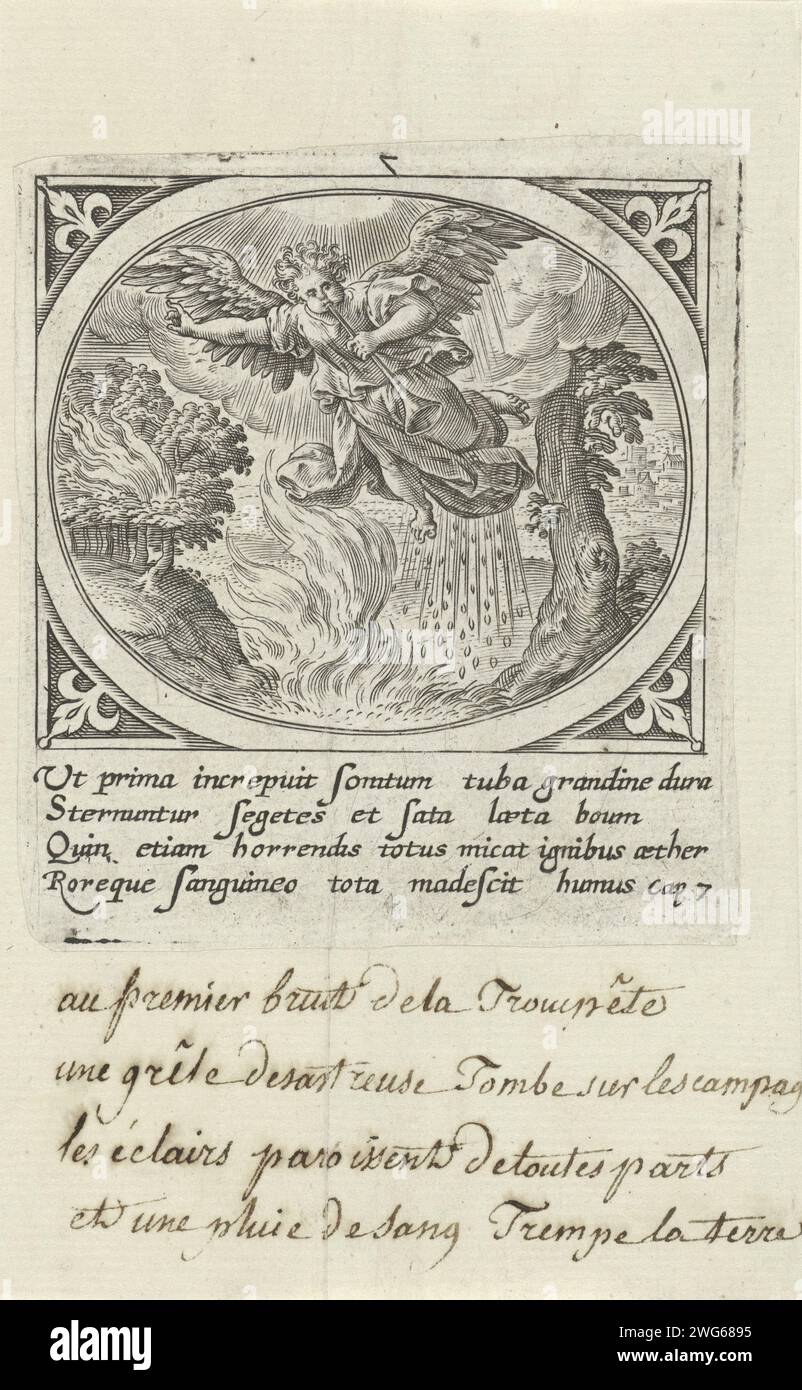 7
Ut prima increpuit sonitum tuba grandine dura
Sternuntur segetes et sata læta boum
Quin etiam horrendis totus micat ignibus æther
Roreque sanguineo tota madescit humus Cap 7
au premier bruit de la Trompête
une grêle desastreuse Tombe sur les campag
les éclairs paroissent de toutes parts
et une pluie de sang Trempe la terre
alamy
alamy
Image ID: 2WG6895
www.alamy.com